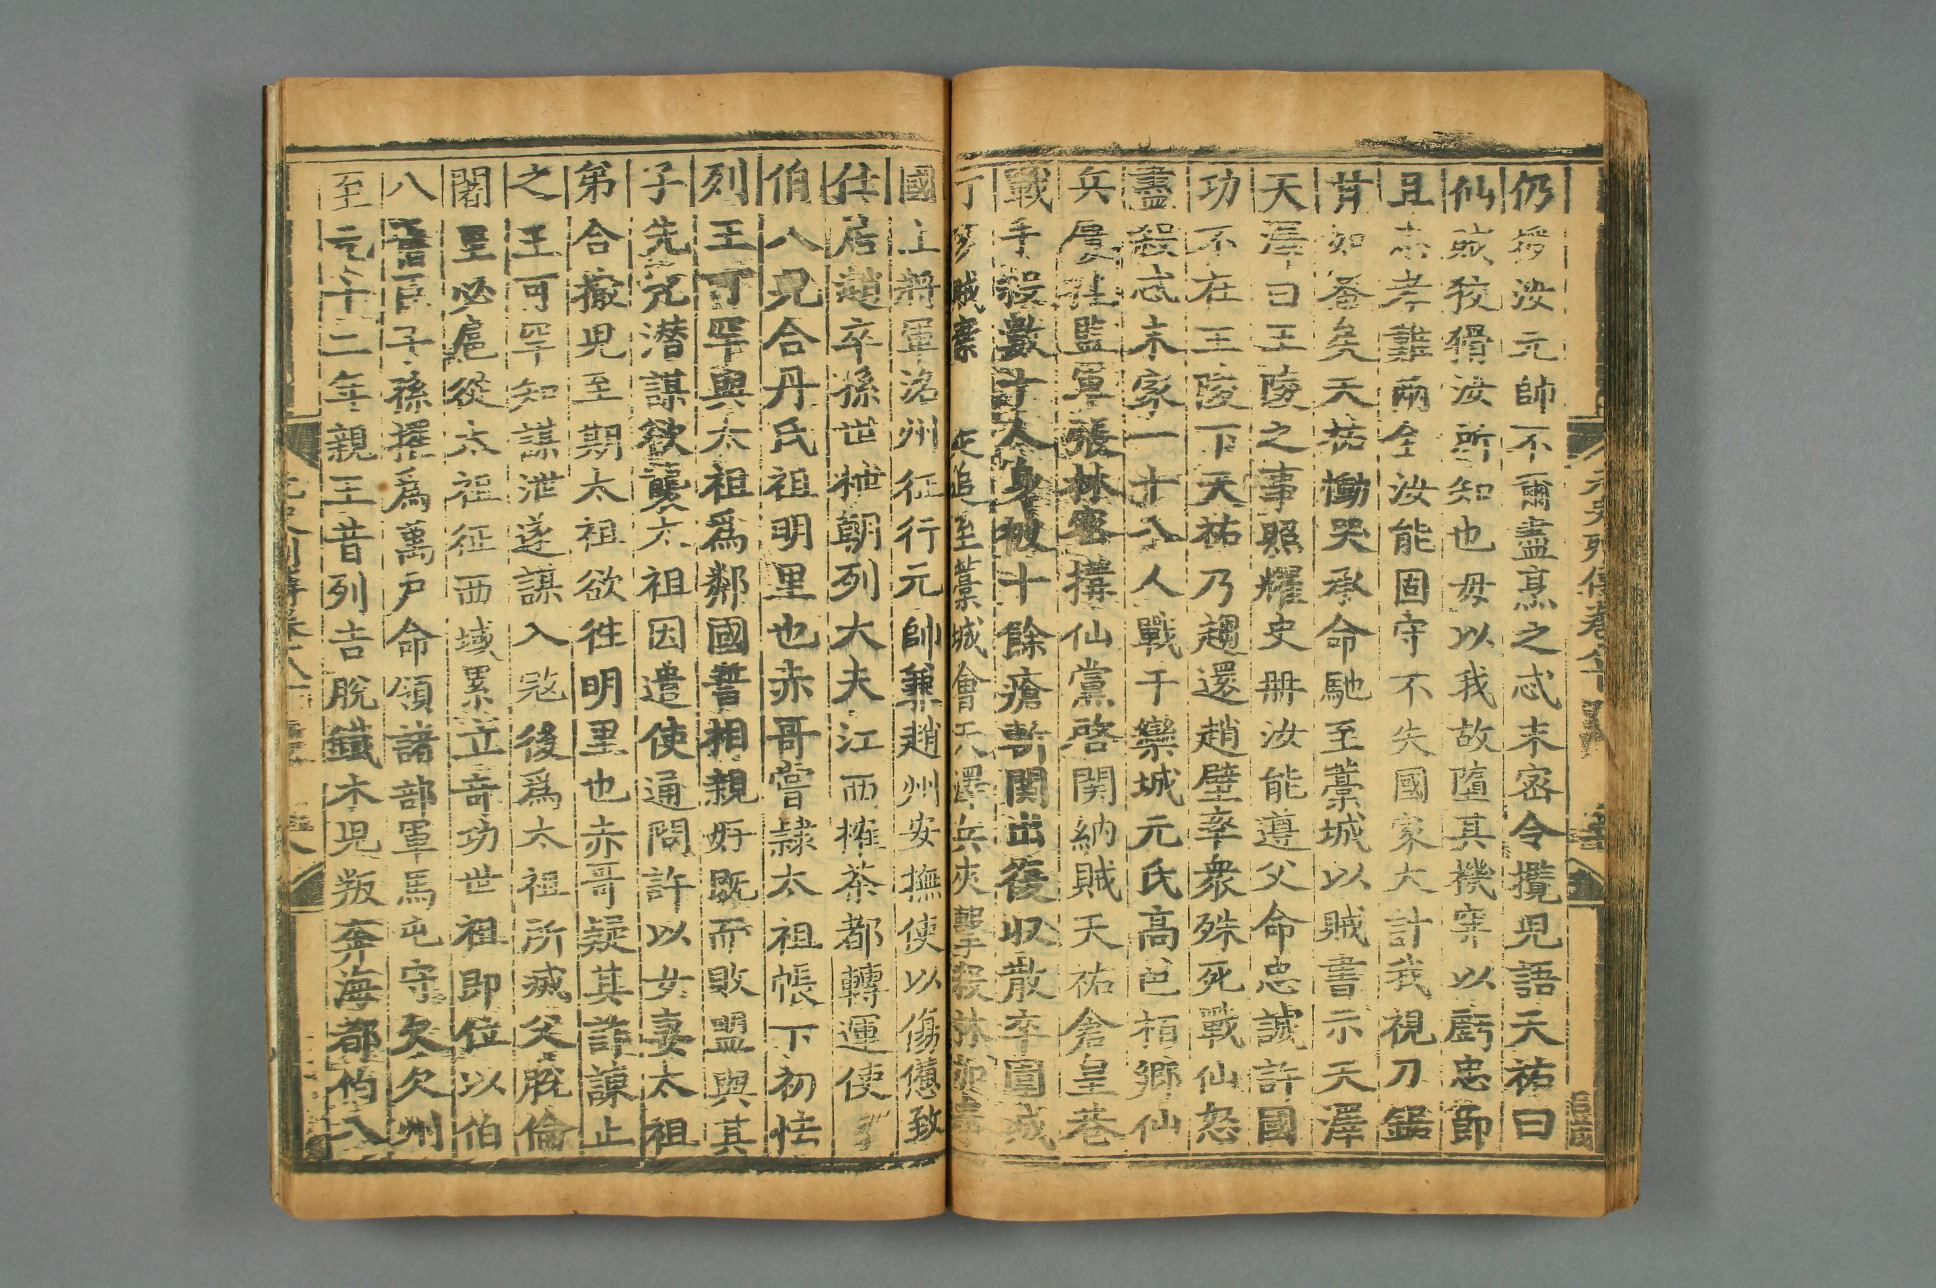 仍授汝元帥不爾盡烹之忒末密令攬兒語天祐曰
仙賊狡猾汝所知也毋以我故墮其機穽以虧忠節
且忠孝難兩全汝能固守不失國家大計我視刀鋸
甘如蜜矣天祐慟哭承命馳至藁城以賊書示天澤
天澤曰王陵之事照耀史册汝能遵父命忠誠許國
功不在王陵下天祐乃趨還趙壁率衆殊死戰仙怒
盡殺忒末家一十八人戰于欒城元氏高邑栢鄉仙
兵屢挫監軍張林密搆仙黨啓關納賊天祐倉皇巷
戰手殺數十人身被十餘瘡斬關出復収散卒圍城
追至藁城會天澤兵夾擊手殺林
國上將軍洺州征行元帥兼趙州安撫使以傷憊致
仕居趙卒孫世樞朝列大夫江西榷茶都轉運使
伯八兒合丹氏祖明里也赤哥嘗隷太祖帳下初怯
列王可罕與太祖爲鄰國誓相親好既而敗盟與其
子先昆潜謀欲襲太祖因遣使通問許以女妻太祖
弟合撒兒至期太祖欲徃明里也赤哥疑其詐諌止
之王可罕知謀泄遂謀入冦後爲太祖所滅父脫倫
闍里必扈從太祖征西域累立奇功世祖即位以伯
八舊臣子孫擢爲萬户命領諸部軍馬屯守欠欠州
至元十二年親王昔列吉脫鐵木兒叛奔海都伯八